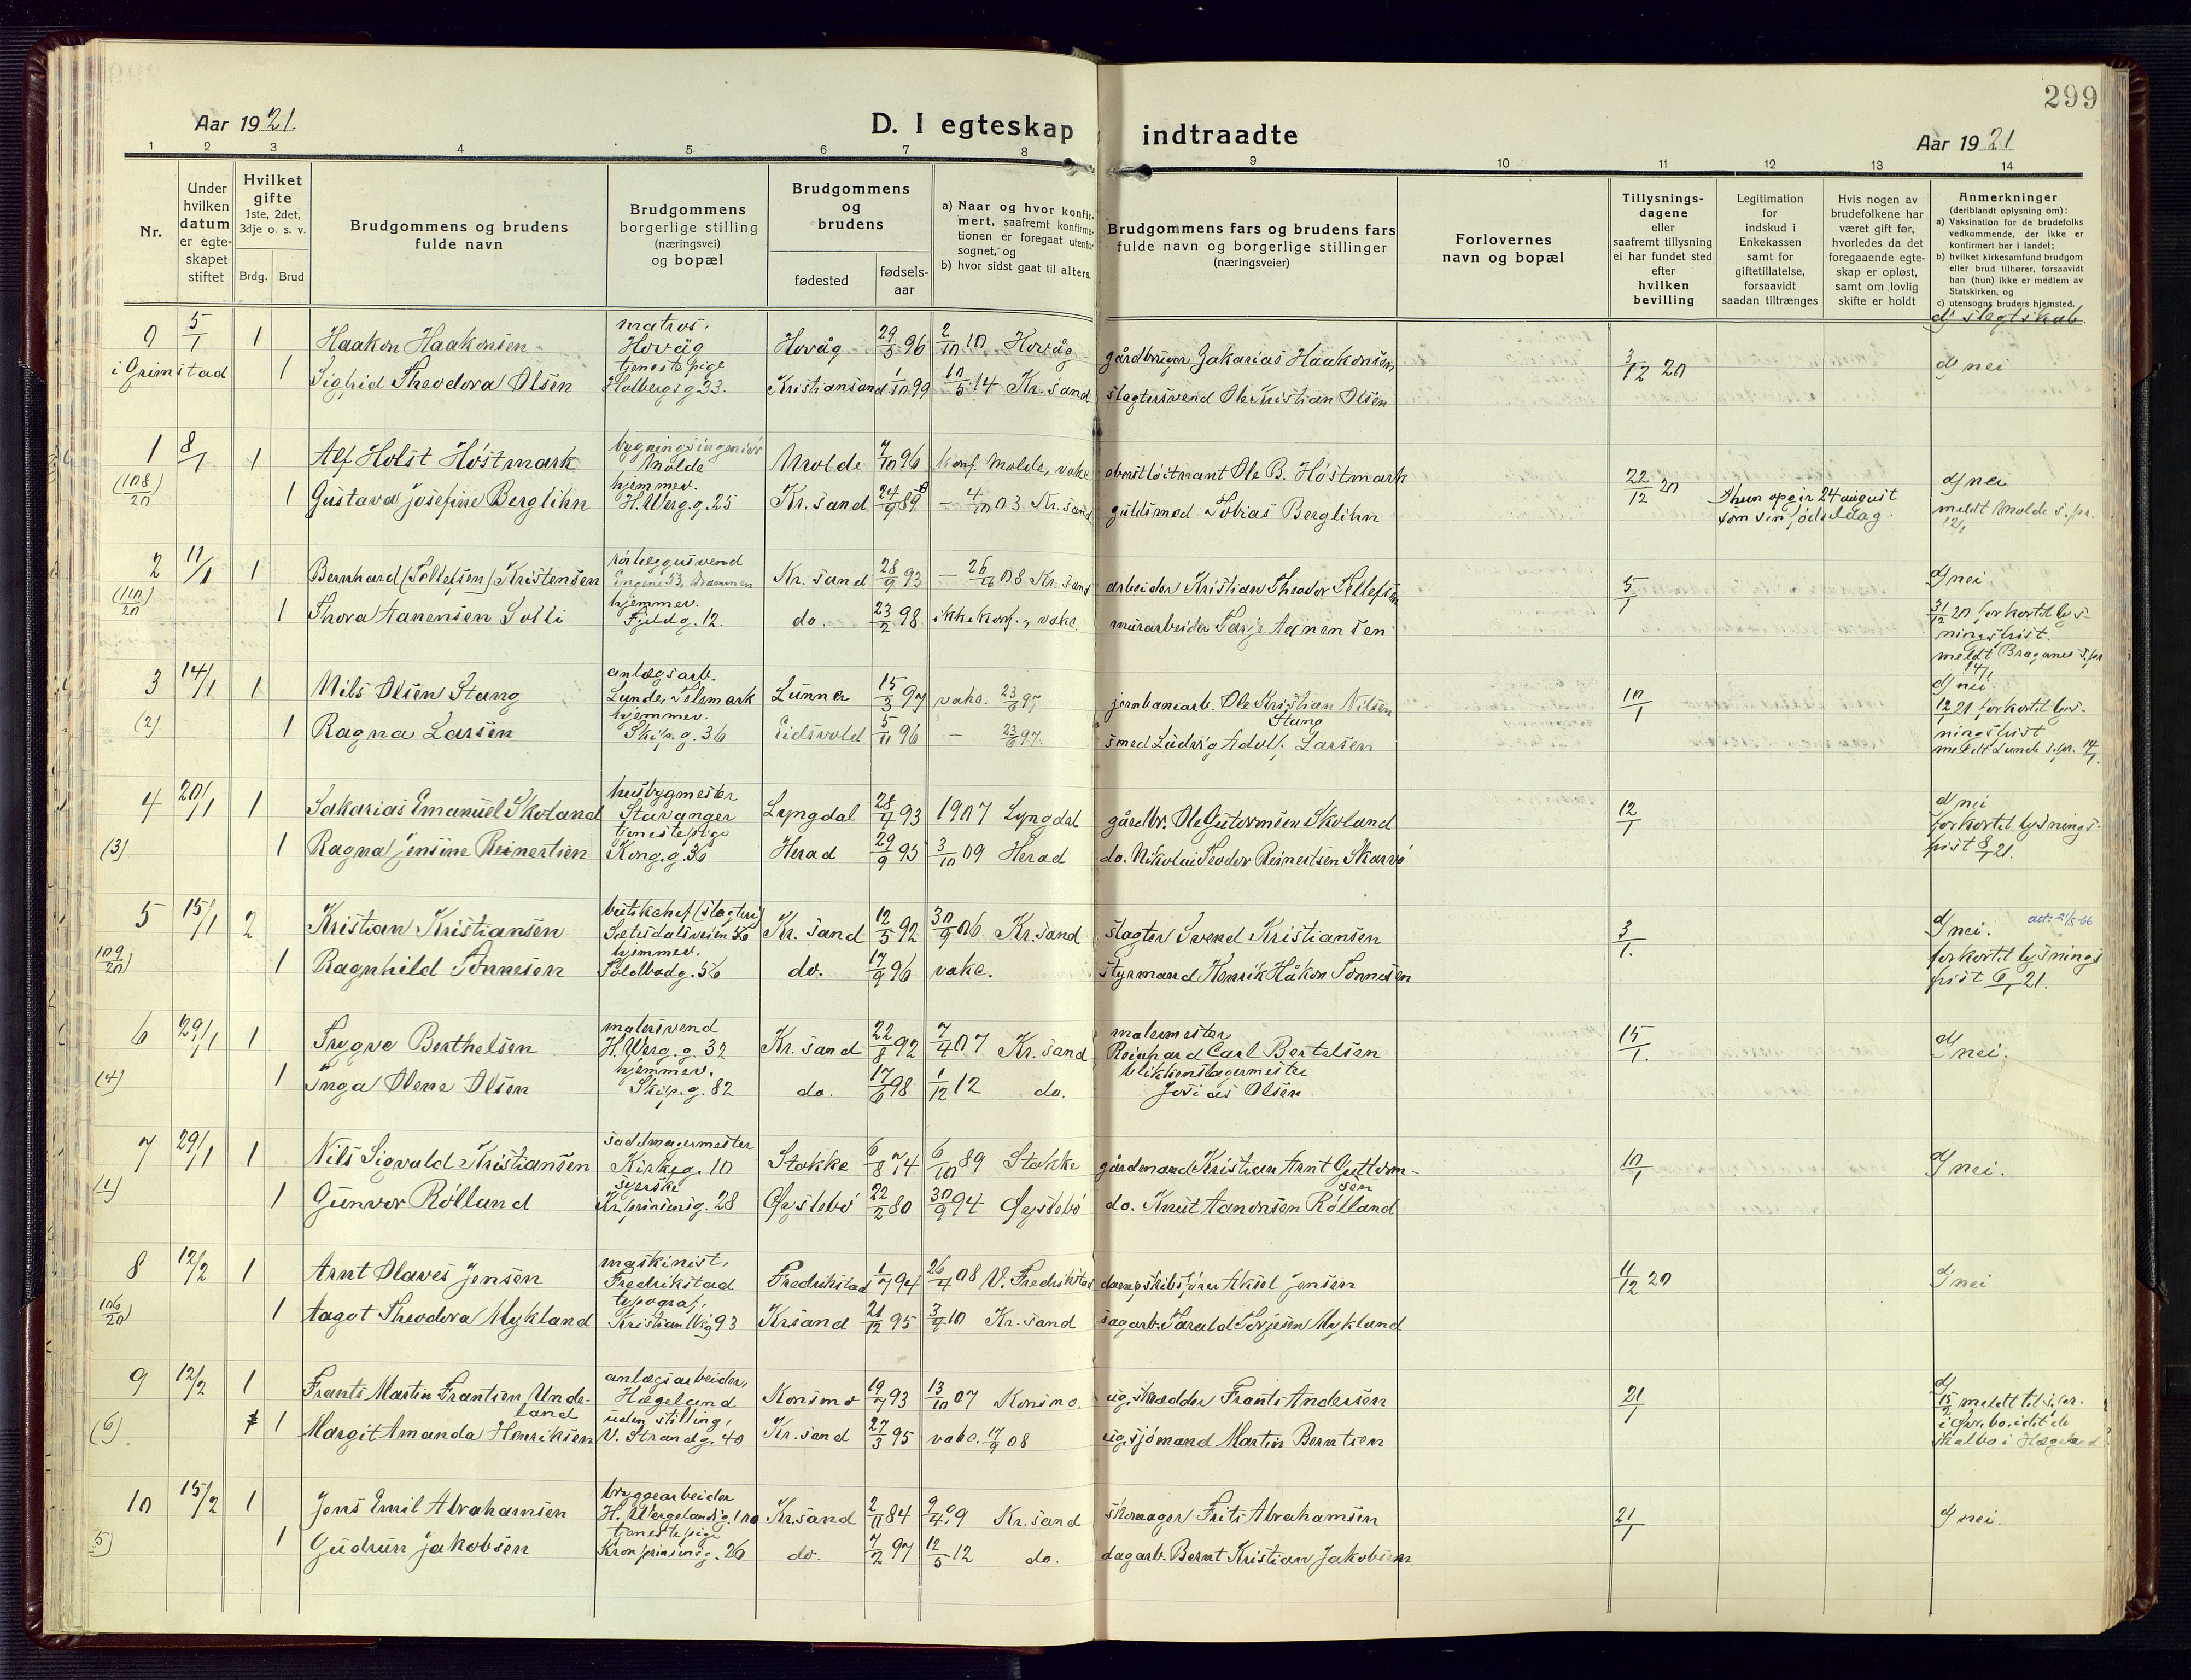 299
Aar 1921.
D. I egteskap indtraadte
Aar 1921
1 2 3 4 5 6 7 8 9 10 11 12 13 14
Nr.
Under hvilken datum er egteskapet stiftet
Hvilket gifte
1ste, 2det, 3dje o. s. v.
Brdg. Brud
Brudgommens og brudens fulde navn
Brudgommens borgerlige stilling (næringsvei) og bopæl
Brudgommens og brudens
fødested
fødsels-aar
a) Naar og hvor konfirmert, saafremt konfirmationen er foregaat utenfor sognet, og
b) hvor sidst gaat til alters.
Brudgommens fars og brudens fars fulde navn og borgerlige stillinger (næringsveier)
Forlovernes navn og bopæl
Tillysningsdagene eller saafremt tillysning ei har fundet sted efter hvilken bevilling
Legitimation for indskud i Enkekassen samt for giftetillatelse, forsaavidt saadan tiltrænges
Hvis nogen av brudefolkene har været gift før, hvorledes da det foregaaende egteskap er opløst, samt om lovlig skifte er holdt
Anmerkninger
(deriblandt oplysning om):
a) Vaksination for de brudefolks vedkommende, der ikke er konfirmert her i landet;
b) hvilket kirkesamfund brudgom eller brud tilhører, forsaavidt han (hun) ikke er medlem av Statskirken, og
c) utensogns bruders hjemsted.
d) slegtskab.
0 5/1 1 Haakon Haakonsen matros, Hovåg Hovåg 29/5 96 2/10 10 Hovåg gårdbruger Zakarias Haakonsen 3/12 20 d) nei
i Grimstad 1 Sigfrid Theodora Olsen tjenestepige Holbergsg. 23. Kristiansand 1/10 99 10/5 14 Kr. sand slagtersvend Ole Kristian Olsen
1 8/1 1 Alf Holst Høstmark bygningsingeniør Molde Molde 7/10 96 konf. Molde, vake oberstløitnant Ole B. Høstmark 22/12 20 d) nei
(108/20) 1 Gustava Josefine Berglihn hjemmev. H. Werg. g. 25 Kr. sand 24/9 89 – 4/10 03 Kr. sand guldsmed Tobias Berglihn hun opgir 24 august som sin fødselsdag. meldt Molde s.pr. 12/1
2 11/1 1 Bernhard (Tellefsen) Kristensen rørlæggersvend Engene 53, Drammen Kr. sand 28/9 93 – 26/4 08 Kr. sand arbeider Kristian Theodor Tellefsen 5/1 d) nei.
(110/20) 1 Thora Aanensen Solli hjemmev. Fjeldg. 12. do. 23/2 98 ikke konf., vake. murarbeider Tarje Aanensen 31/12 20 forkortet lysningsfrist. meldt Bragenes s.pr 14/1
3 14/1 1 Nils Olsen Stang anlægsarb. Lunde, Telemark Lunner 15/3 97 vake. 23/6 97. jernbanearb. Ole Kristian Nilsen Stang 10/1 d) nei.
(2) 1 Ragna Larsen hjemmev. Skip. g. 36 Eidsvold 5/11 96 – 23/6 97. smed Ludvig Adolf Larsen 12/1 21 forkortet lysningsfrist meldt Lunde s.pr. 14/1
4 20/1 1 Sakarias Emanuel Skoland husbygmester Stavanger Lyngdal 28/7 93 1907 Lyngdal gårdbr. Ole Gutormsen Skoland 12/1 d) nei
(3) 1 Ragna Jensine Reinertsen tjenestepige Kong. g. 36 Herad 29/9 95 3/10 09 Herad do. Nikolai Teodor Reinertsen Skarvø forkortet lysnings-frist 8/1 21.
5 15/1 2 Kristian Kristiansen butikchef (slagteri) Setesdalsveien 56 Kr. sand 12/5 92 30/9 06 Kr. sand slagter Svend Kristiansen 3/1. d) nei.
(109/20) 1 Ragnhild Tønnesen hjemmev. Toldbodg. 56 do. 17/9 96 vake. styrmand Henrik Håkon Tønnesen forkortet lysnings frist 6/1 21.
6 29/1 1 Trygve Berthelsen malersvend H. Werg. g. 32 Kr. sand 22/8 92 7/4 07 Kr. sand malermester Reinhard Carl Bertelsen 15/1. d) nei.
(4) 1 Inga Olene Olsen hjemmev. Skip. g. 82 do. 17/6 98 1/12 12 do. blikkenslagermester Josias Olsen
7 29/1 1 Nils Sigvald Kristiansen sadelmagermester Kirkeg. 10 Stokke 6/8 74 6/10 89 Stokke gårdmand Kristian Arnt Guttormsen 10/1 d) nei.
1 Gunvor Rølland syerske Kr. prinsensg. 28 Øyslebø 22/2 80 30/9 94 Øyslebø do. Knut Aanonsen Rølland
8 12/2 1 Arnt Olaves Jensen maskinist, Fredrikstad Fredrikstad 1/7 94 26/4 08 V. Fredrikstad dampskibsfører Aksel Jensen 11/12 20 d) nei
(106/20) 1 Aagot Theodora Mykland typograf, Kristian IVsg 93 Kr sand 21/12 95 3/4 10 Kr. sand sagarb. Tarald Terjesen Mykland
9 12/2 1 Frants Martin Frantsen Undeland anlægsarbeider, Hægeland Konsmo 19/7 93 13/10 07 Konsmo. Frants Andersen 21/1 d)
(6). 1 Margit Amanda Henriksen uden stilling, V. Strandg. 40 Kr. sand 27/3 95 vake. 17/9 08 sjømand Martin Berntsen 15/2 meldt til s.pr. skal bo i Hægeland
10 15/2 1 Jens Emil Abrahamsen bryggearbeider H. Wergelandsg. 100 Kr. sand 2/11 84 Kr. sand skomager Frits Abrahamsen 21/1 d) nei.
5) 1 Gudrun Jakobsen tjenestepige Kronprinsensg. 26 do. 7/2 97 12/5 12 do. dagarb. Bernt Kristian Jakobsen